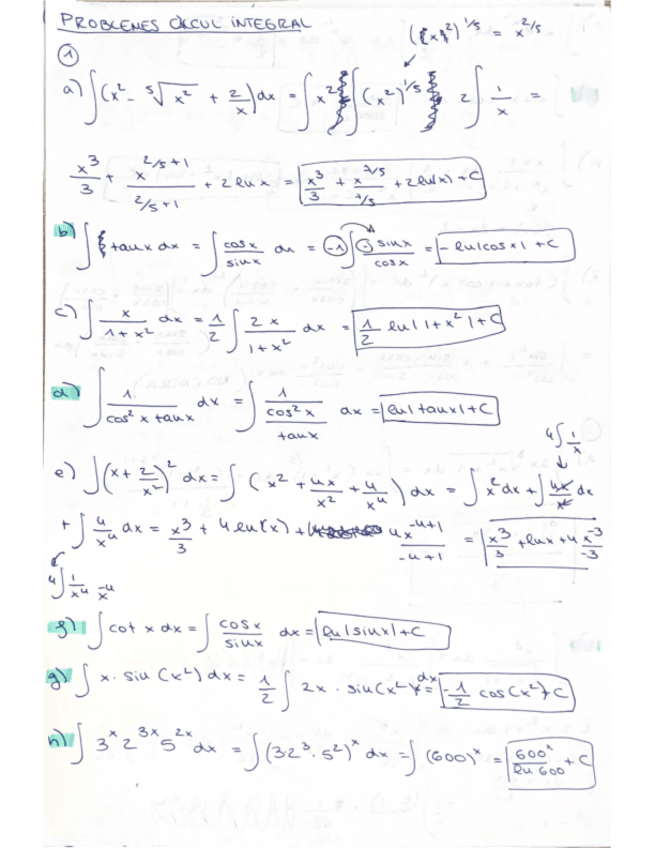 PROBLEMES CÀLCUL INTEGRAL
(x²)^1/5 = x^2/5
①
a) ∫(x² - ⁵√x² + 2/x)dx = ∫x² ∫(x²)^1/5 2∫1/x =
x³/3 + x^(2/5+1)/(2/5+1) + 2 ln x = x³/3 + x^7/5/(7/5) + 2ln(x) + C
b) ∫ tanx dx = ∫ cosx/sinx dx = -1 ∫ - sinx/cosx = - ln|cosx| + C
c) ∫ x/(1+x²) dx = 1/2 ∫ 2x/(1+x²) dx = 1/2 ln|1+x²| + C
d) ∫ 1/(cos²x tanx) dx = ∫ (1/cos²x)/tanx dx = ln|tanx| + C
4∫1/x
e) ∫(x + 2/x²)² dx = ∫(x² + 4x/x² + 4/x⁴) dx = ∫x² dx + ∫4x/x² dx
+ ∫ 4/x⁴ dx = x³/3 + 4 ln(x) + 4x^(-4+1)/(-4+1) = x³/3 + lnx + 4 x^-3/-3
4∫1/x⁴ x^-4
f) ∫ cot x dx = ∫ cosx/sinx dx = ln|sinx| + C
g) ∫ x · sin(x²) dx = 1/2 ∫ 2x · sin(x²) dx = -1/2 cos(x²) + C
h) ∫ 3^x 2^3x 5^2x dx = ∫(3·2³·5²)^x dx = ∫(600)^x = 600^x/ln 600 + C